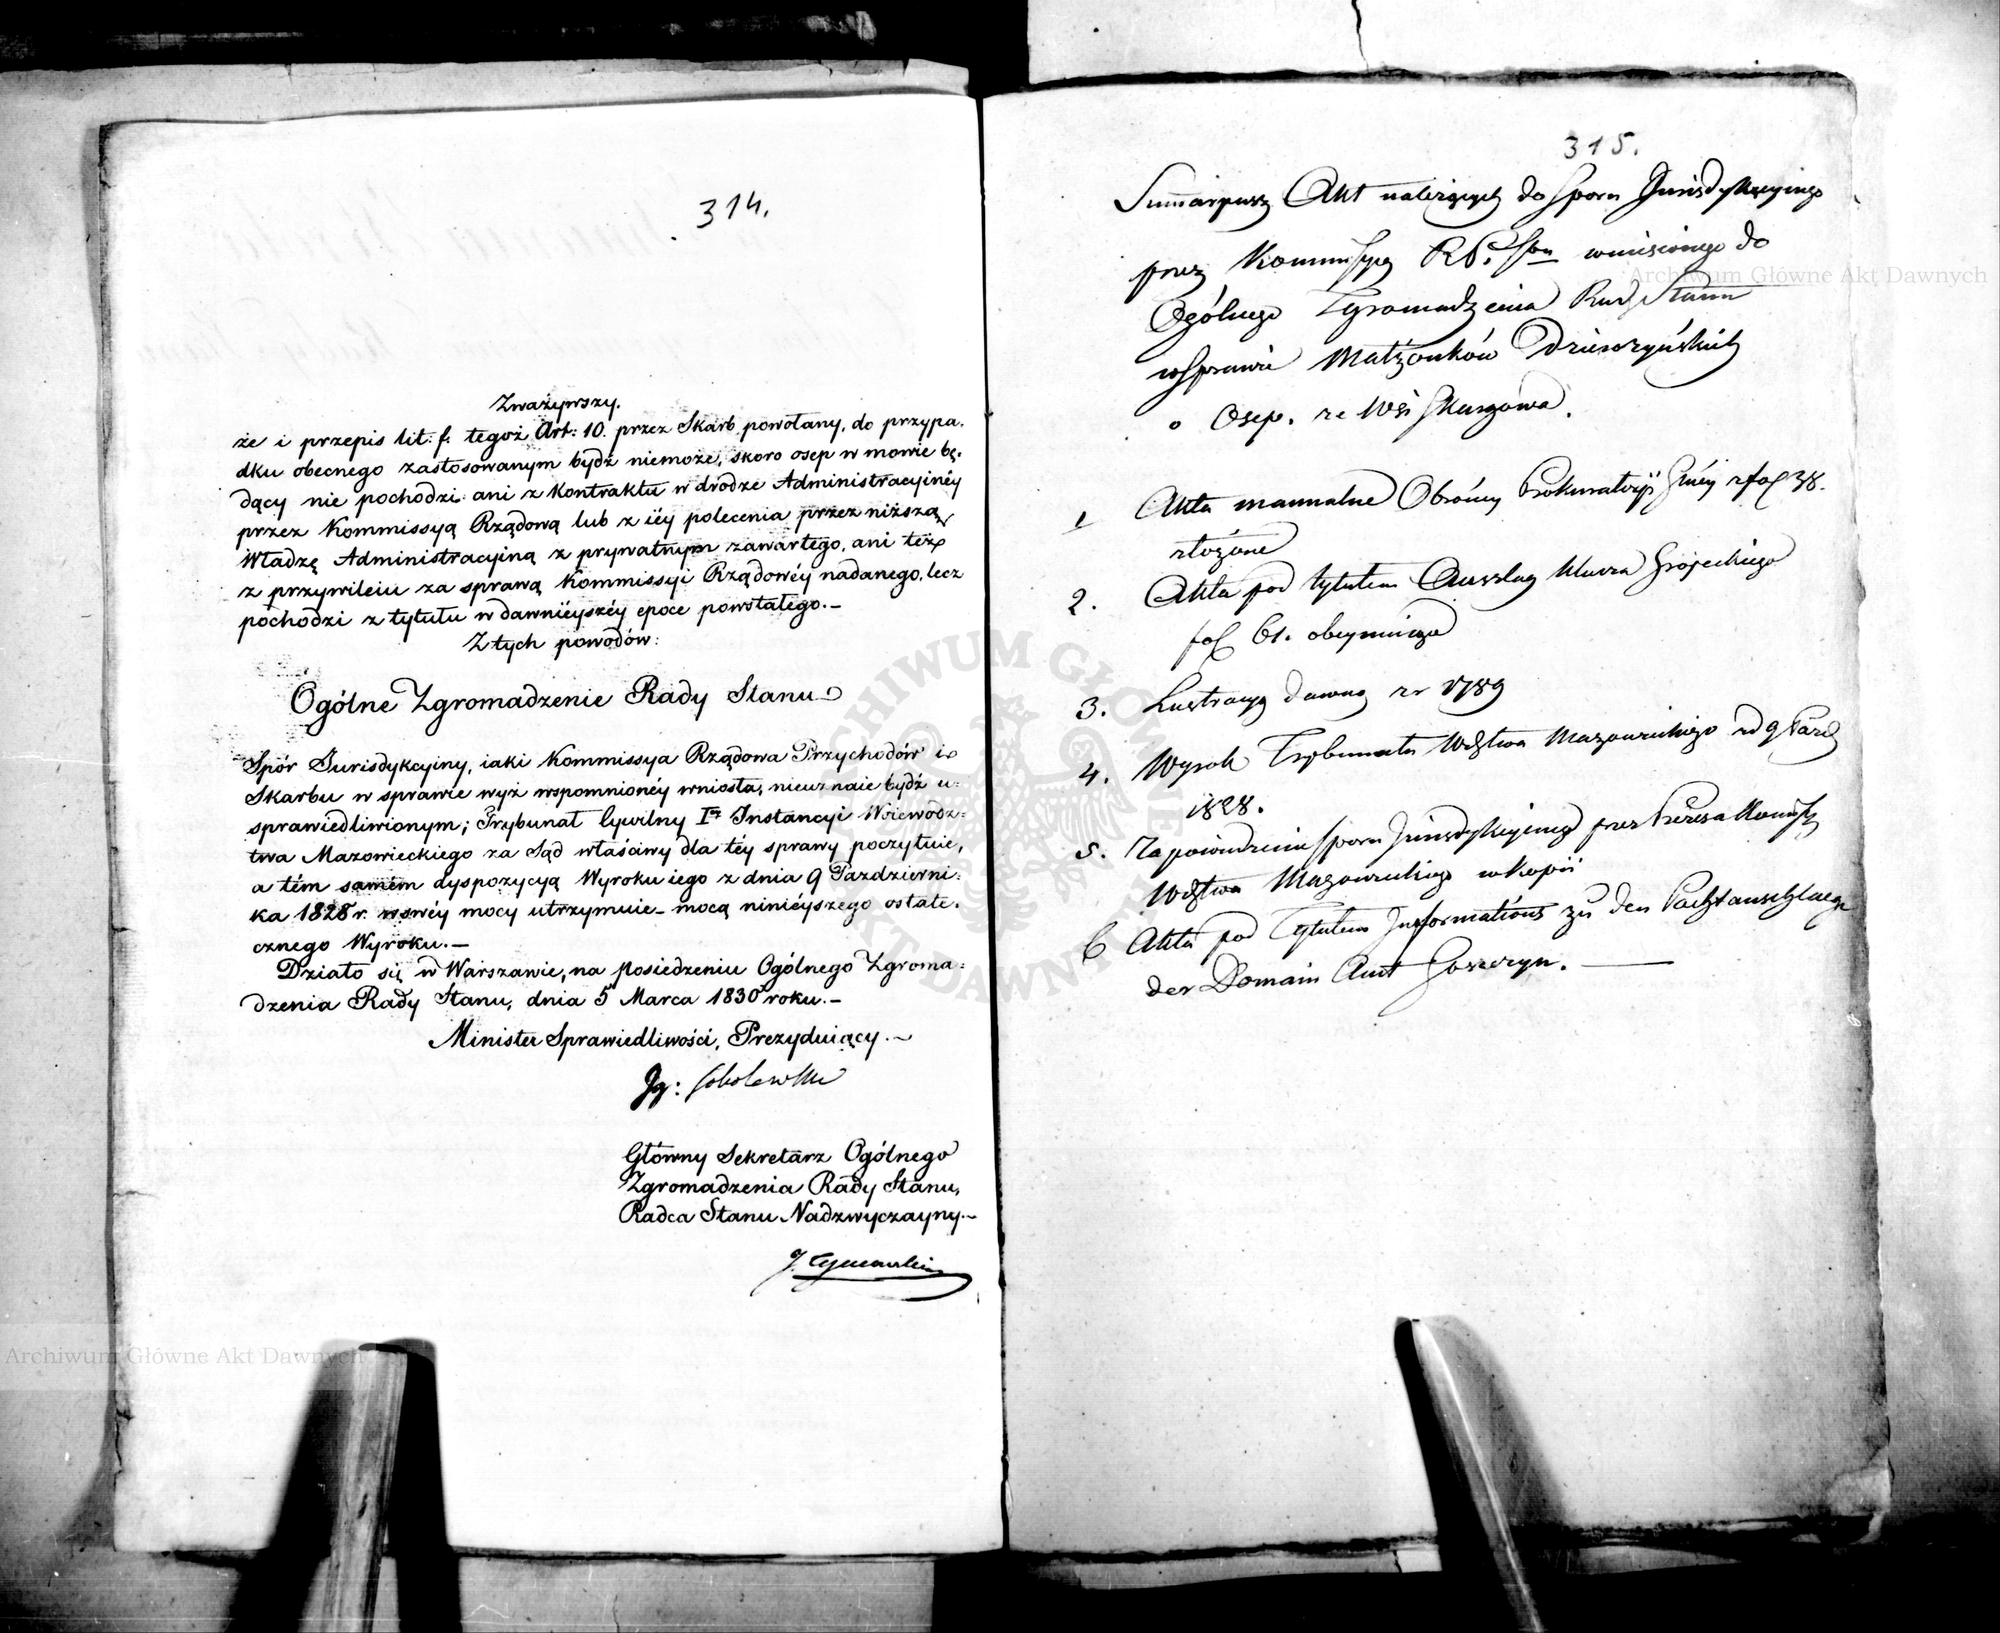 314.
Zważywszy.
że i przepis lit: f. tegoż Art: 10. przez Skarb powołany, do przypa-
dku obecnego zastosowanym bydź niemoże, skoro osep w mowie bę-
dący nie pochodzi ani z kontraktu w drodze Administracyinéy
przez Kommissyą Rządową lub z iéy polecenia przez niższą
Władzę Administracyiną z prywatnym zawartego, ani też
z przywileiu za sprawą Kommissyi Rządowéy nadanego, lecz
pochodzi z tytułu w dawniéyszéy epoce powstałego.—
Z tych powodów:
Ogólne Zgromadzenie Rady Stanu
Spór Jurisdykcyiny, iaki Kommissya Rządowa Przychodów i
Skarbu w sprawie wyż wspomnionéy wniosła, nieuznaie bydź u-
sprawiedliwionym; Trybunał Cywilny Iéy Instancyi Woiewodz-
twa Mazowieckiego za Sąd właściwy dla téy sprawy poczytuie,
a tém samém dyspozycyą Wyroku iego z dnia 9 Pazdzierni-
ka 1828 r. w swéy mocy utrzymuie — mocą ninieyszego ostate-
cznego Wyroku.—
Działo się w Warszawie, na posiedzeniu Ogólnego Zgroma-
dzenia Rady Stanu, dnia 5 Marca 1830 roku.—
Minister Sprawiedliwości, Prezyduiący.—
Ig: Sobolewski
Główny Sekretarz Ogólnego
Zgromadzenia Rady Stanu,
Radca Stanu Nadzwyczayny.—
J. Tymowski
315.
Summaryusz Akt należących do Sporu Jurisdykcyinego
przez Kommissyą R. P. i Sbu wniesionego do
Ogólnego Zgromadzenia Rady Stanu
w Sprawie Małżonków Dziewczyńskich
o Osep. ze Wsi Skurzowa.
1 Akta manualne Obrońcy Prokuratoryi Gnéy z fol 38.
złożone
2. Akta pod tytułem Ausslag Klucza Grójeckiego
fol 61. obeymuiące
3. Lustracyą dawną z r 1789
4. Wyrok Trybunału Wdztwa Mazowieckiego z d 9 Pazd
1828.
5. Zapowiedzenie Sporu Jurisdykcyinego przez Prezesa Kommissyi
Wdztwa Mazowieckiego w kopii
6 Akta pod Tytułem Informations zu den Pachtanschlaege
der Domain Amt Goszczyn.
Archiwum Główne Akt Dawnych
Archiwum Główne Akt Dawnych
ARCHIWUM GŁÓWNE AKT DAWNYCH